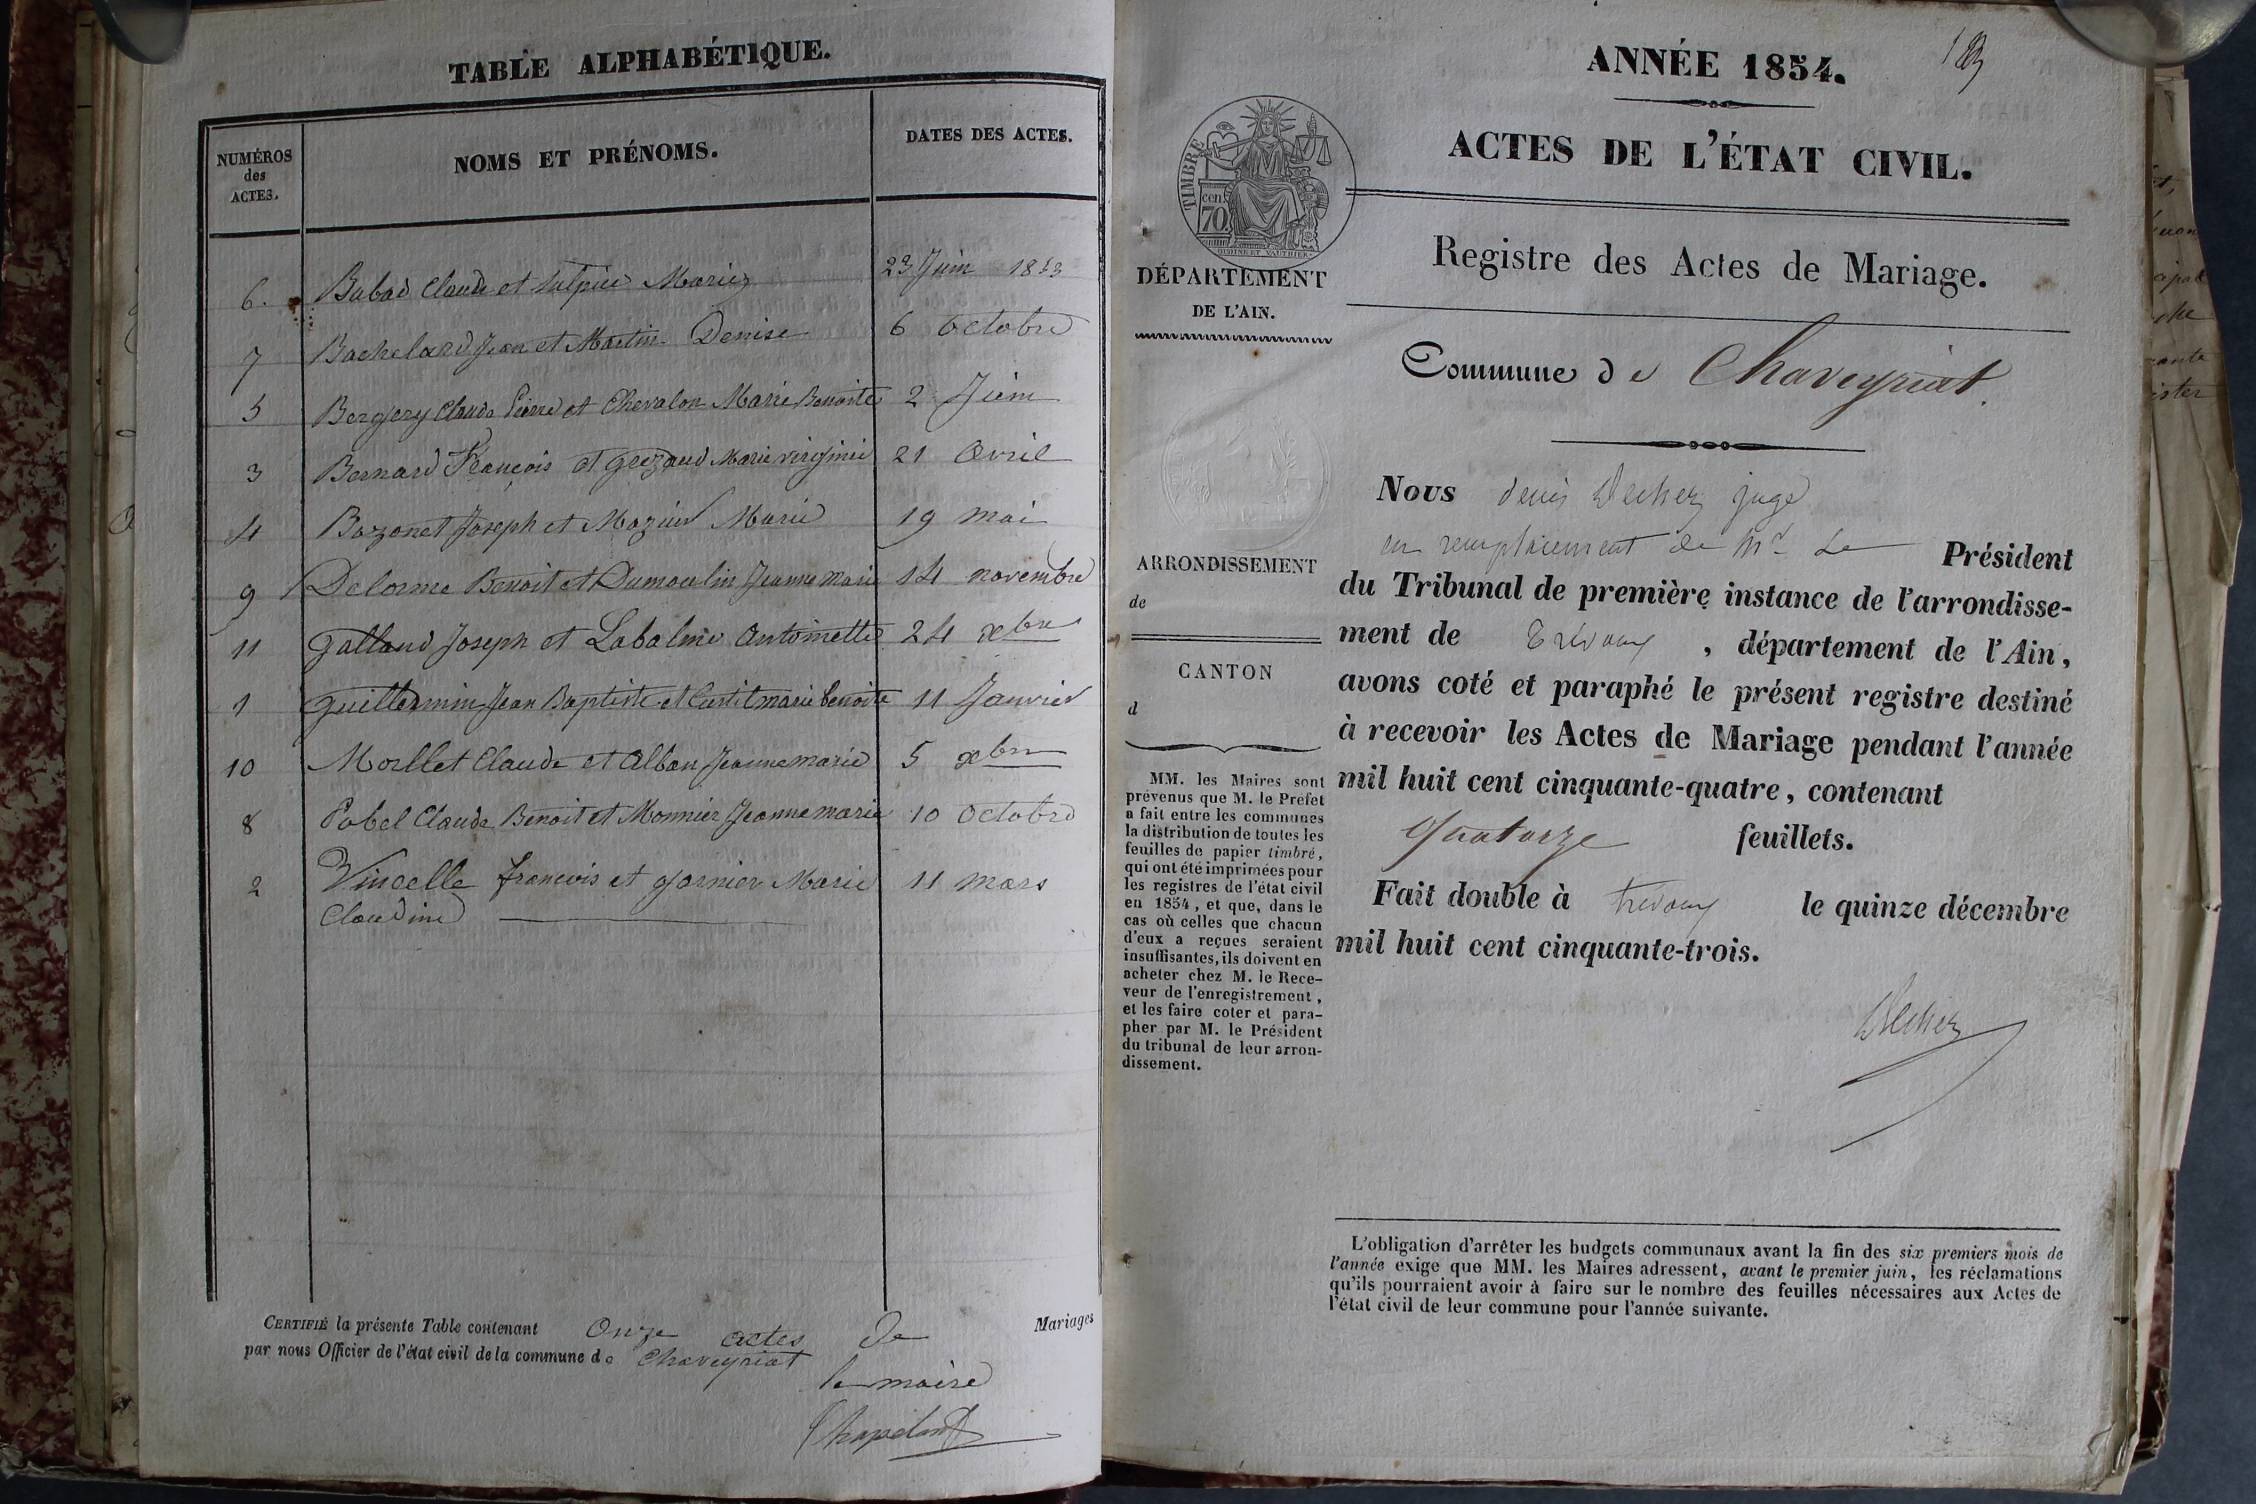 TABLE ALPHABÉTIQUE.
NUMÉROS
des
ACTES.
NOMS ET PRÉNOMS.
DATES DES ACTES.
6. Babad Claude et Sulpice Marie 23 Juin 1853
7 Bachelard Jean et Martin Denise 6 octobre
5 Bergery Claude Pierre et Chevalon Marie Benoite 2 Juin
3 Bernard François et Grezaud Marie virginie 21 avril
4 Bozonet Joseph et Mazuir Marie 19 mai
9 Delorme Benoit et Dumoulin Jeanne marie 14 novembre
11 galland Joseph et Labalme antoinette 24 xbre
1 guillermin Jean Baptiste et Curtil marie benoite 11 Janvier
10 Morllet Claude et alban Jeanne marie 5 xbre
8 Pobel Claude Benoit et Monnier Jeanne marie 10 octobre
2 Vincelle françois et garnier Marie 11 mars
Claudine
CERTIFIÉ la présente Table contenant onze actes de Mariages
par nous Officier de l'état civil de la commune de Chaveyriat
le maire
Chapeland
ANNÉE 1854.
ACTES DE L'ÉTAT CIVIL.
TIMBRE
cen.
70.
DÉPARTEMENT
DE L'AIN.
Registre des Actes de Mariage.
Commune de Chaveyriat.
ARRONDISSEMENT
de
CANTON
d
MM. les Maires sont
prévenus que M. le Préfet
a fait entre les communes
la distribution de toutes les
feuilles de papier timbré,
qui ont été imprimées pour
les registres de l'état civil
en 1854, et que, dans le
cas où celles que chacun
d'eux a reçues seraient
insuffisantes, ils doivent en
acheter chez M. le Rece-
veur de l'enregistrement,
et les faire coter et para-
pher par M. le Président
du tribunal de leur arron-
dissement.
Nous denis juge
en remplacement de Mr Le Président
du Tribunal de première instance de l'arrondisse-
ment de Trévoux, département de l'Ain,
avons coté et paraphé le présent registre destiné
à recevoir les Actes de Mariage pendant l'année
mil huit cent cinquante-quatre, contenant
quatorze feuillets.
Fait double à trévoux le quinze décembre
mil huit cent cinquante-trois.
L'obligation d'arrêter les budgets communaux avant la fin des six premiers mois de
l'année exige que MM. les Maires adressent, avant le premier juin, les réclamations
qu'ils pourraient avoir à faire sur le nombre des feuilles nécessaires aux Actes de
l'état civil de leur commune pour l'année suivante.